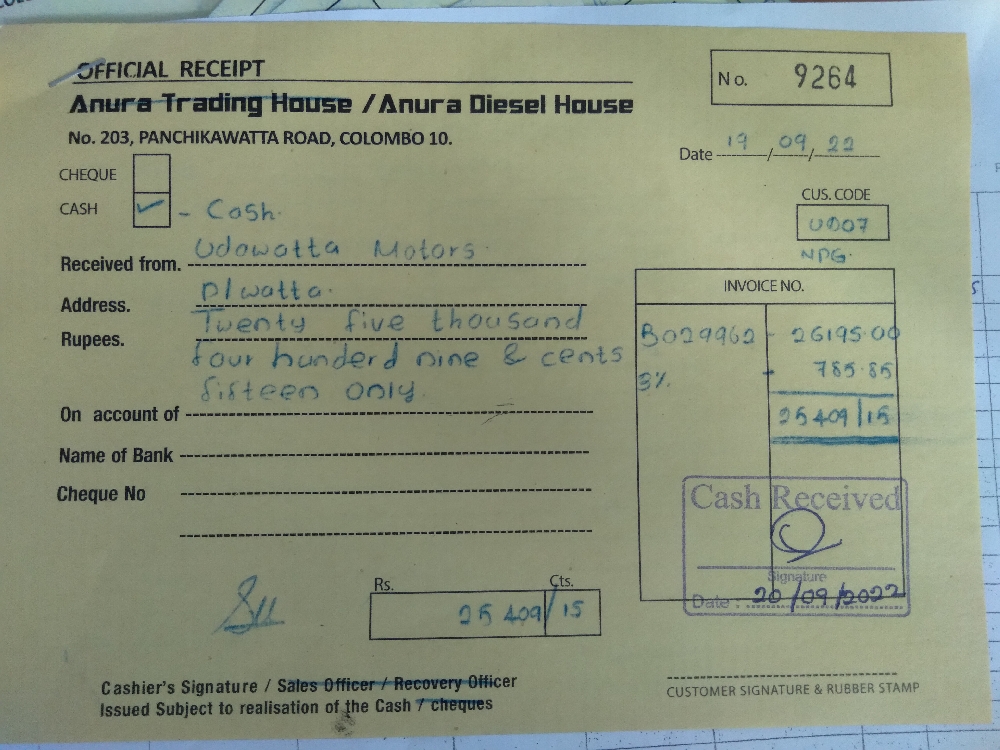 OFFICIAL RECEIPT
Anura Trading House / Anura Diesel House
No. 203, PANCHIKAWATTA ROAD, COLOMBO 10.
No. 9264
Date 19/09/22
CHEQUE
CASH ✓ - Cash.
CUS. CODE
UD07
NPG.
Received from. Udawatta Motors
Address. P/watta.
Rupees. Twenty five thousand
four hunderd nine & cents
fifteen only.
On account of
Name of Bank
Cheque No
INVOICE NO.
B029962 - 26195.00
3% - 785.85
25409/15
Cash Received
Signature
Date : 20/09/2022
Rs. Cts.
25 409/15
Cashier's Signature / Sales Officer / Recovery Officer
Issued Subject to realisation of the Cash / cheques
CUSTOMER SIGNATURE & RUBBER STAMP